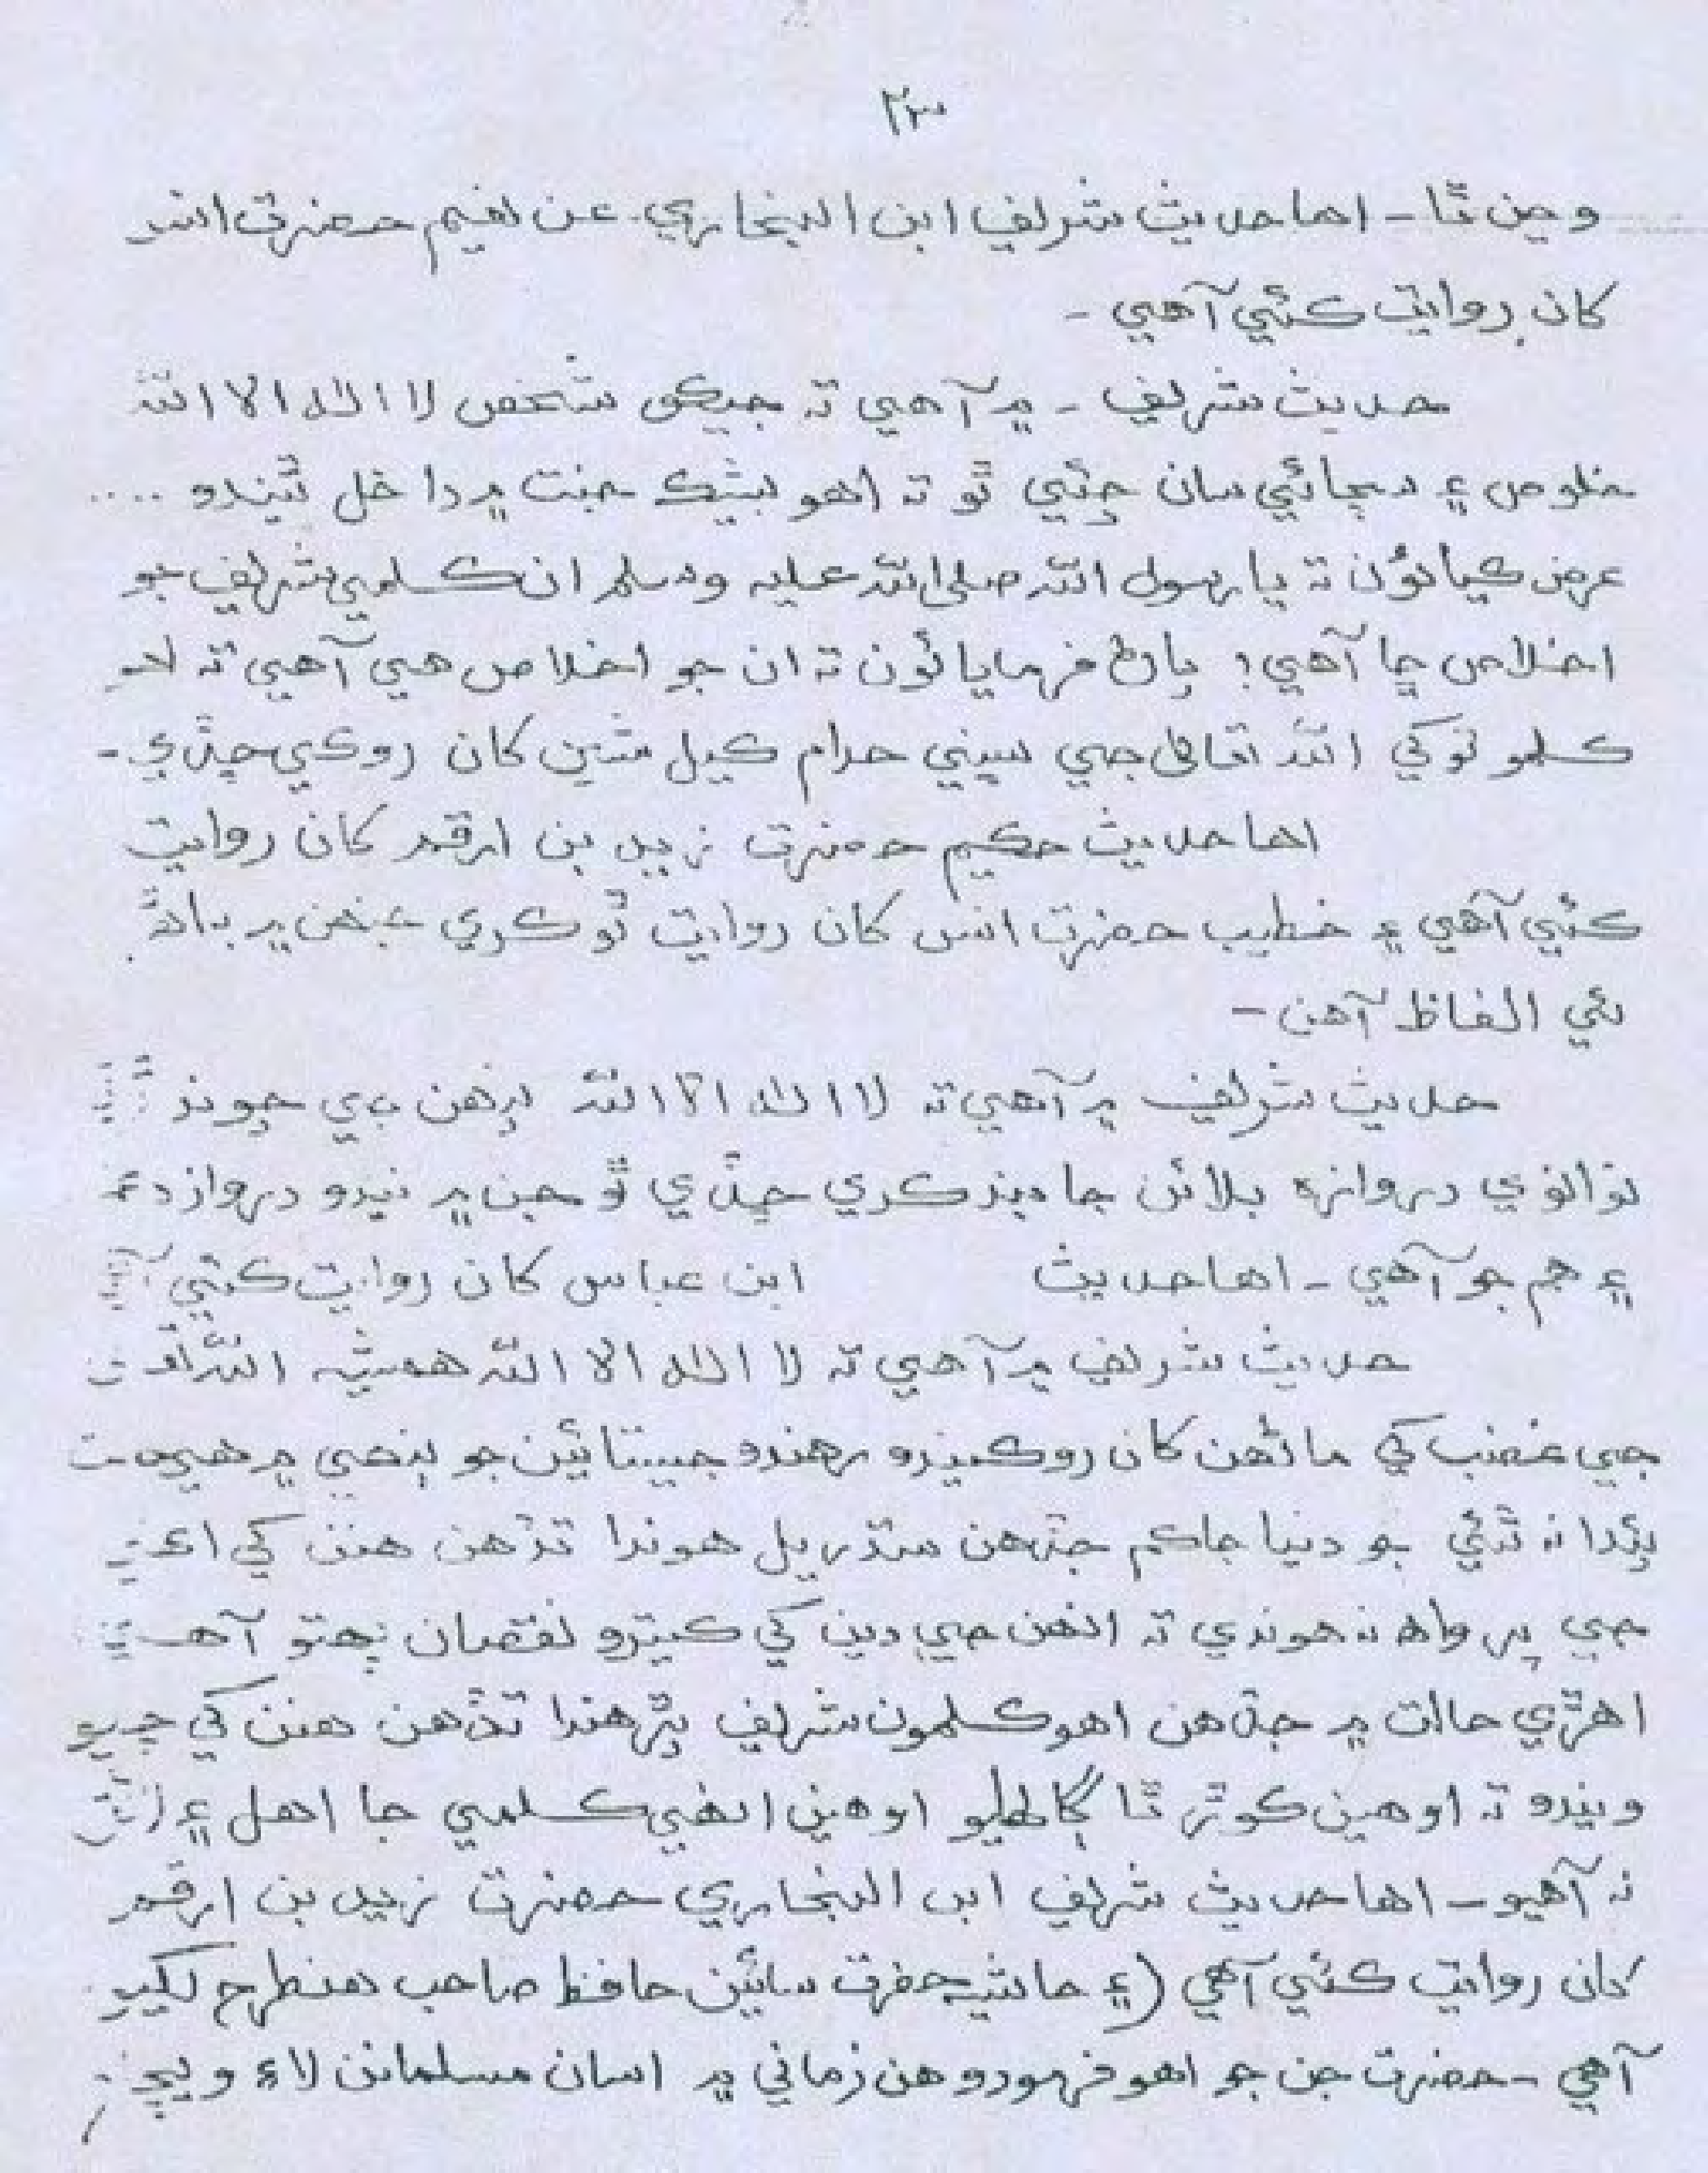 ٢٣
وڃن ٿا - اها حديث شريف ابن البخاري عن نعيم حضرت انس
کان روايت ڪئي آهي -
حديث شريف - ۾ آهي ته جيڪو شخص لا اله الا الله
خلوص ۽ سچائي سان چئي ٿو ته اهو بيشڪ جنت ۾ داخل ٿيندو ....
عرض ڪيائون ته يا رسول الله صلي الله عليه وسلم ان ڪلمي شريف جو
اخلاص ڇا آهي؟ پاڻ فرمايائون ته ان جو اخلاص هي آهي ته
ڪلمو توکي الله تعاليٰ جي سيني حرام ڪيل شين کان روڪي ڇڏي -
اها حديث حڪيم حضرت زيد بن ارقم کان روايت
ڪئي آهي ۽ خطيب حضرت انس کان روايت ٿو ڪري جنهن ۾
ٻئي الفاظ آهن -
حديث شريف ۾ آهي ته لا اله الا الله پڙهن جي چوندڙ
نوانوي دروازه بلائن جا بند ڪري ڇڏي ٿو جن ۾ ننڍو دروازو
۽ هم جو آهي - اها حديث ابن عباس کان روايت ڪئي
حديث شريف ۾ آهي ته لا اله الا الله هميشه الله
جي غضب کي ماڻهن کان روڪيندو رهندو جيستائين جو ٻنهي ۾ هي
پيدا نه ٿئي جو دنيا جا ڪم جڏهن سڌريل هوندا تڏهن هنن کي
جي پرواهه نه هوندي ته انهن جي دين کي ڪيترو نقصان پهتو
اهڙي حالت ۾ جڏهن اهو ڪلمون شريف پڙهندا تڏهن هنن کي چيو
ويندو ته اوهين ڪوڙ ٿا ڳالهايو اوهين انهي ڪلمي جا اهل ۽
نه آهيو - اها حديث شريف ابن البخاري حضرت زيد بن ارقم
کان روايت ڪئي آهي (۽ حاشيه حضرت سائين حافظ صاحب هنطرح لکيو
آهي - حضرت جن جو اهو فرمودو هن زماني ۾ اسان مسلمانن لاءِ